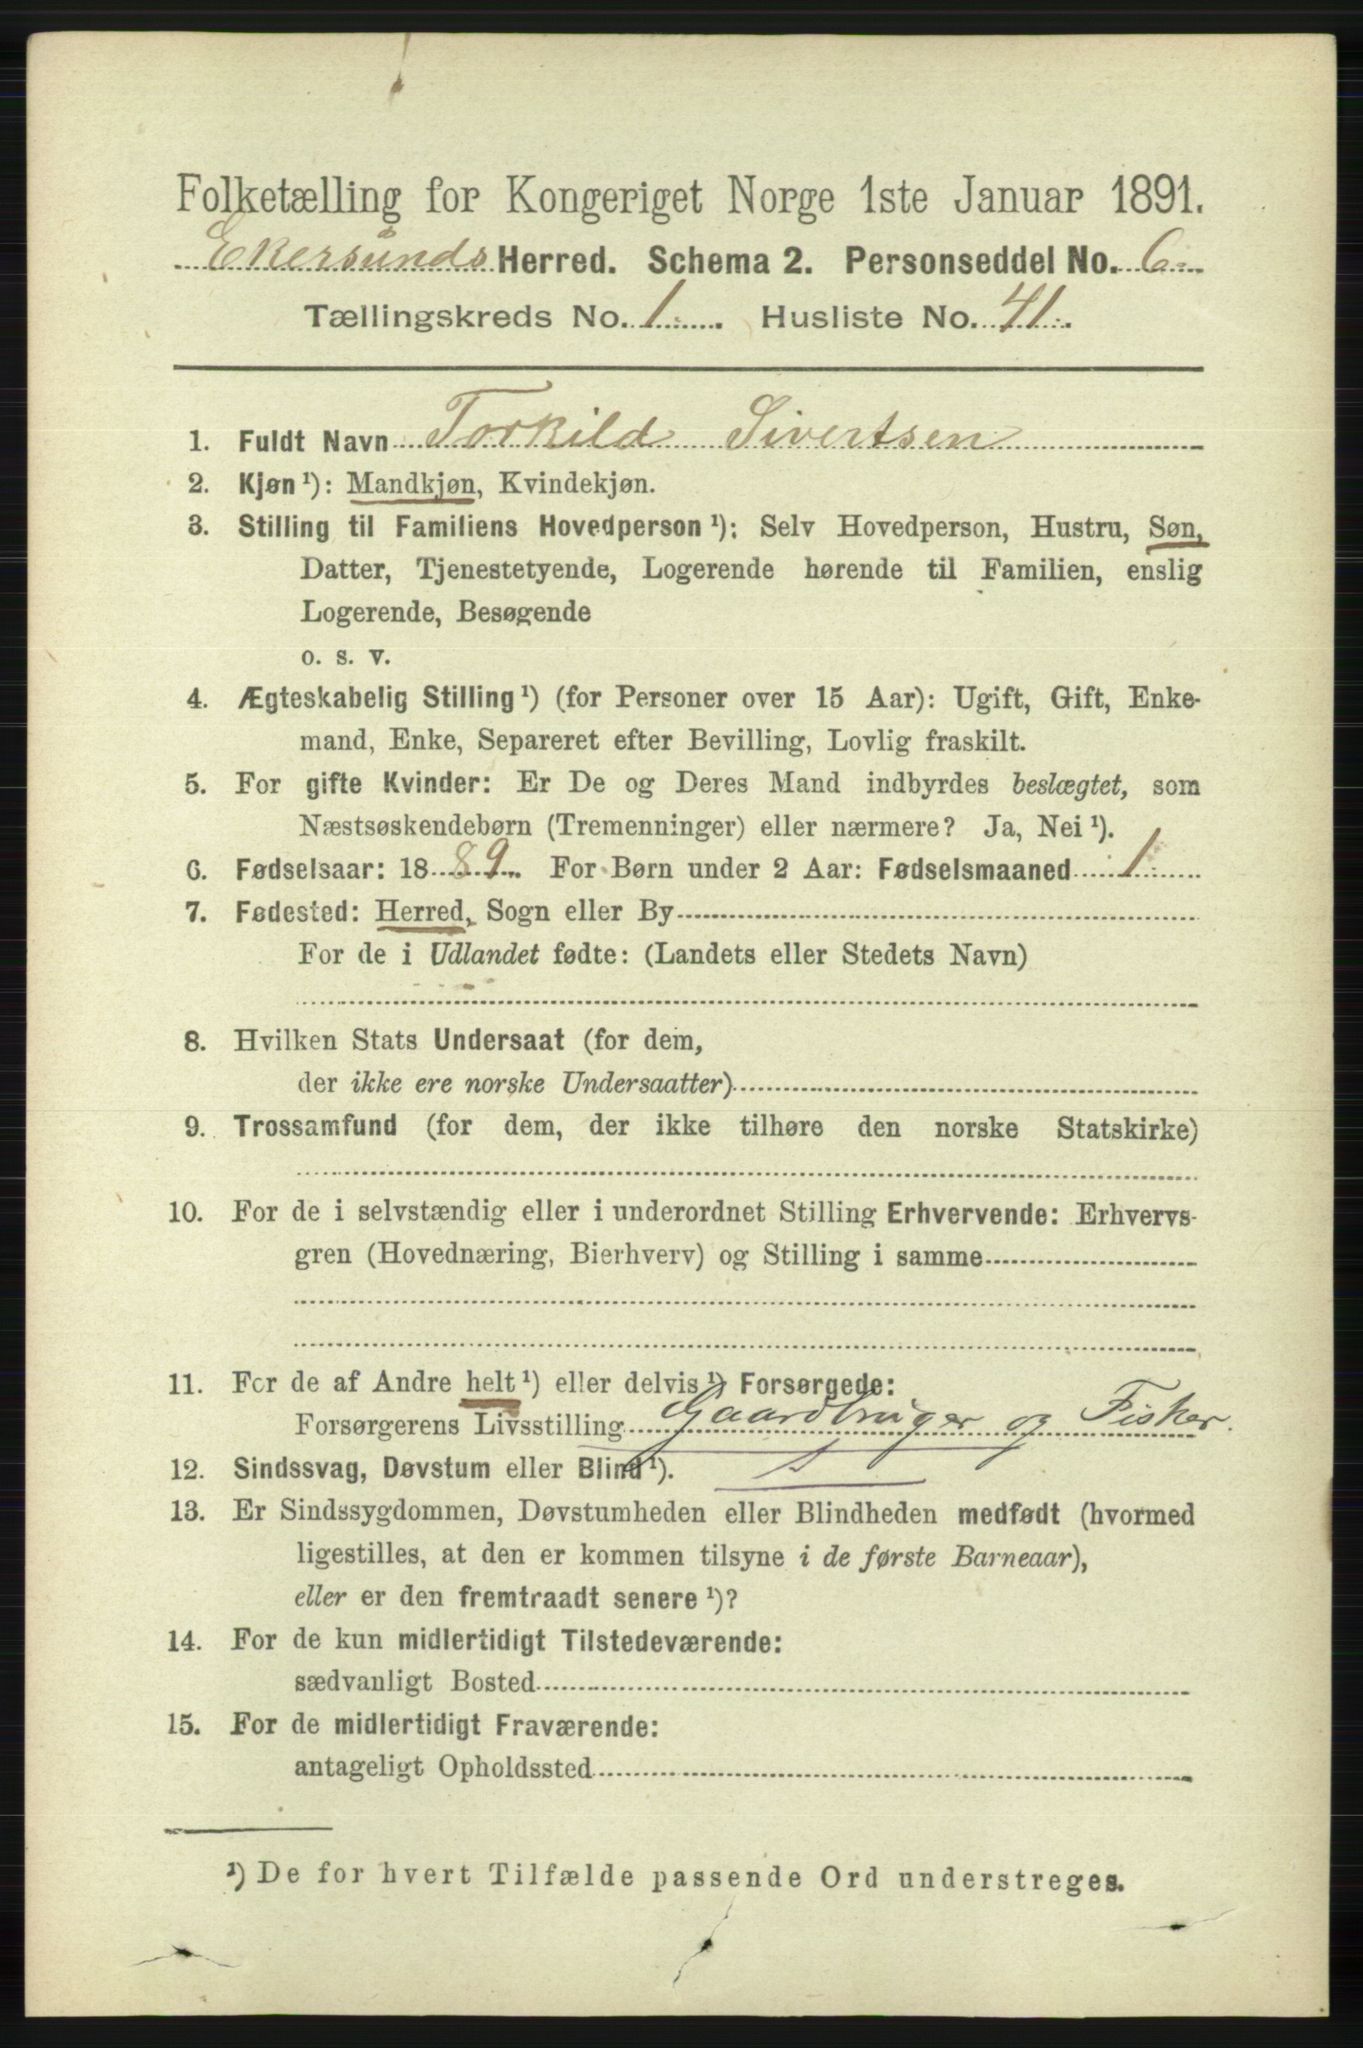 Folketælling for Kongeriget Norge 1ste Januar 1891.
Ekersunds Herred. Schema 2. Personseddel No. 6
Tællingskreds No. 1. Husliste No. 41.
1. Fuldt Navn Torkild Sivertsen
2. Kjøn ¹): Mandkjøn, Kvindekjøn.
3. Stilling til Familiens Hovedperson ¹): Selv Hovedperson, Hustru, Søn,
Datter, Tjenestetyende, Logerende hørende til Familien, enslig
Logerende, Besøgende
o. s. v.
4. Ægteskabelig Stilling ¹) (for Personer over 15 Aar): Ugift, Gift, Enke-
mand, Enke, Separeret efter Bevilling, Lovlig fraskilt.
5. For gifte Kvinder: Er De og Deres Mand indbyrdes beslægtet, som
Næstsøskendebørn (Tremenninger) eller nærmere? Ja, Nei ¹).
6. Fødselsaar: 1889. For Børn under 2 Aar: Fødselsmaaned 1
7. Fødested: Herred, Sogn eller By
For de i Udlandet fødte: (Landets eller Stedets Navn)
8. Hvilken Stats Undersaat (for dem,
der ikke ere norske Undersaatter)
9. Trossamfund (for dem, der ikke tilhøre den norske Statskirke)
10. For de i selvstændig eller i underordnet Stilling Erhvervende: Erhvervs-
gren (Hovednæring, Bierhverv) og Stilling i samme
11. For de af Andre helt ¹) eller delvis ¹) Forsørgede:
Forsørgerens Livsstilling Gaardbruger og Fisker.
12. Sindssvag, Døvstum eller Blind ¹).
13. Er Sindssygdommen, Døvstumheden eller Blindheden medfødt (hvormed
ligestilles, at den er kommen tilsyne i de første Barneaar),
eller er den fremtraadt senere ¹)?
14. For de kun midlertidigt Tilstedeværende:
sædvanligt Bosted
15. For de midlertidigt Fraværende:
antageligt Opholdssted
¹) De for hvert Tilfælde passende Ord understreges.